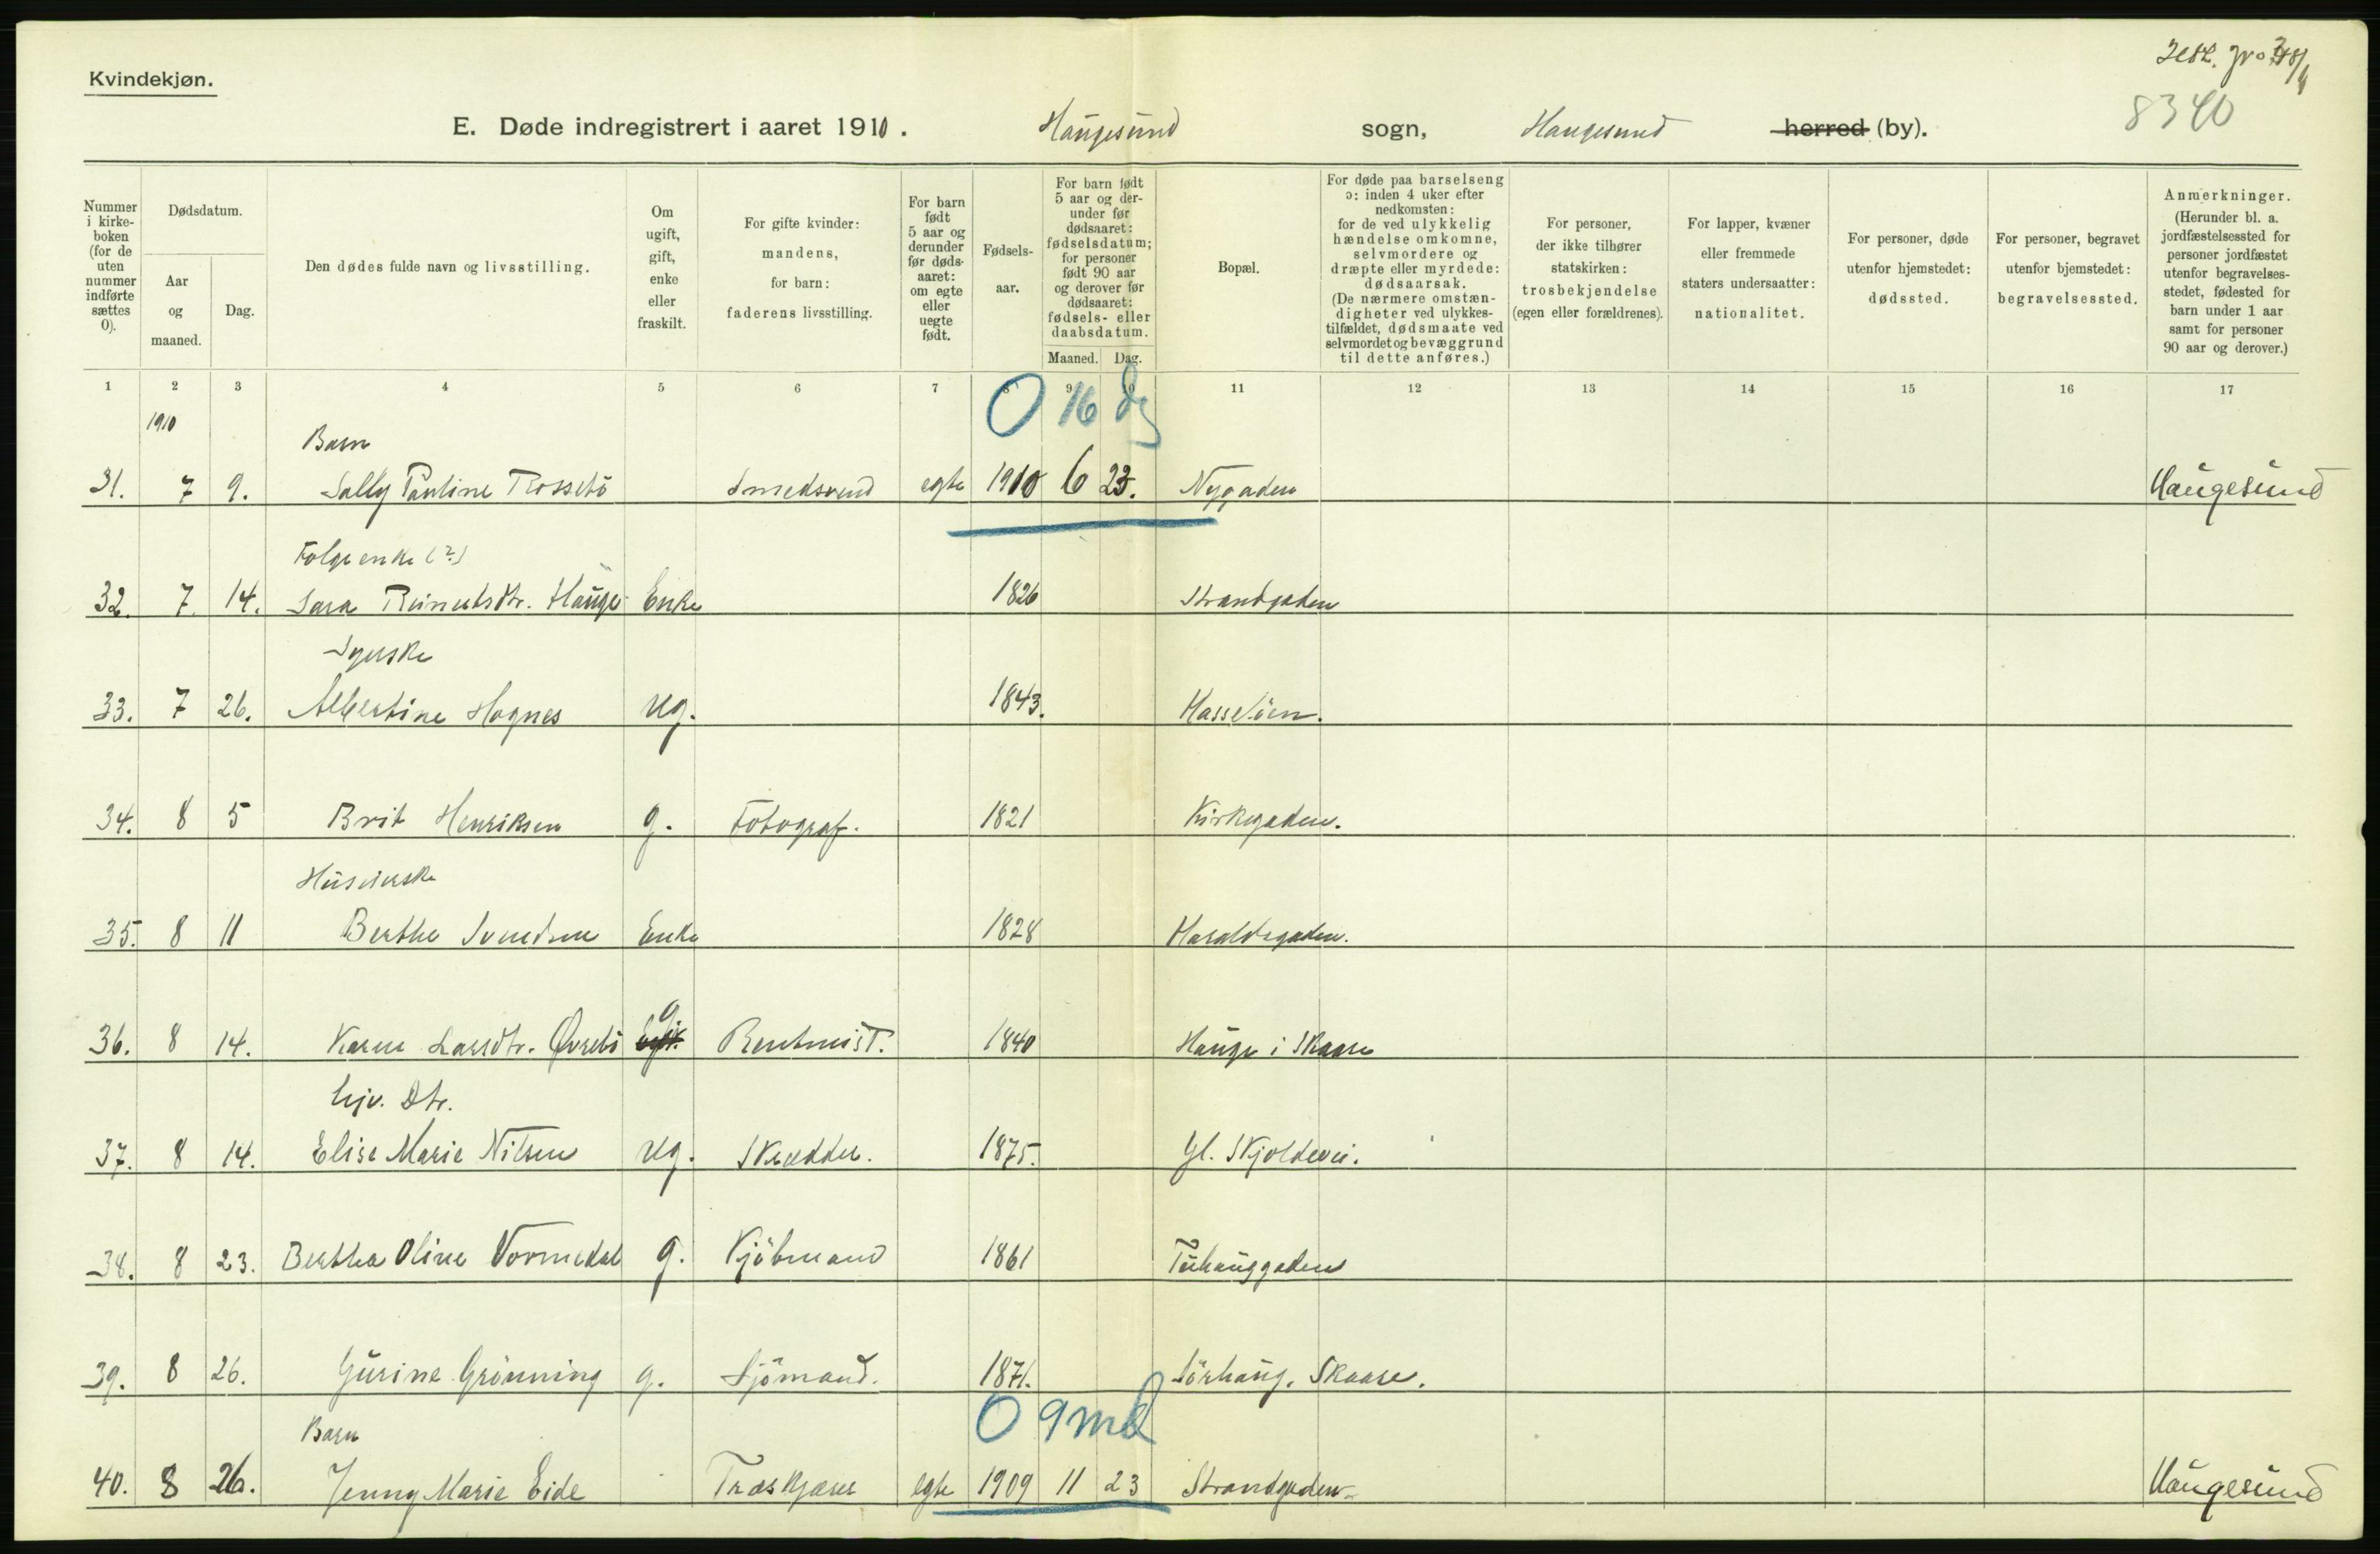 Kvindekjøn.
8340
E. Døde indregistrert i aaret 1910. Haugesund sogn, Haugesund herred (by).
Nummer i kirke-boken (for de uten nummer indførte sættes 0).
Dødsdatum.
Aar og maaned.
Dag.
Den dødes fulde navn og livsstilling.
Om ugift, gift, enke eller fraskilt.
For gifte kvinder: mandens, for barn: faderens livsstilling.
For barn født 5 aar og derunder før døds-aaret: om egte eller uegte født.
Fødsels-aar.
For barn født 5 aar og der-under før dødsaaret: fødselsdatum; for personer født 90 aar og derover før dødsaaret: fødsels- eller daabsdatum.
Maaned. Dag.
Bopæl.
For døde paa barselseng ɔ: inden 4 uker efter nedkomsten: for de ved ulykkelig hændelse omkomne, selvmordere og dræpte eller myrdede: dødsaarsak. (De nærmere omstæn-digheter ved ulykkes-tilfældet, dødsmaate ved selvmordet og bevæggrund til dette anføres.)
For personer, der ikke tilhører statskirken: trosbekjendelse (egen eller forældrenes).
For lapper, kvæner eller fremmede staters undersaatter: nationalitet.
For personer, døde utenfor hjemstedet: dødssted.
For personer, begravet utenfor bjemstedet: begravelsessted.
Anmerkninger. (Herunder bl. a. jordfæstelsessted for personer jordfæstet utenfor begravelses-stedet, fødested for barn under 1 aar samt for personer 90 aar og derover.)
1 2 3 4 5 6 7 8 9 10 11 12 13 14 15 16 17
1910
0 16 dg
Barn
31. 7 9. Sally Pauline Rossebø Smedsvend egte 1910 6 23. Nygaden Haugesund
Folgeenke (?)
32. 7. 14. Sara Reinertsdtr. Hauge Enke 1826 Strandgaden
Syerske
33. 7 26. Albertine Hognes ug. 1843. Hasseløen.
34. 8 5 Brit Henriksen g. Fotograf. 1821 Kirkegaden.
Huseierske
35. 8 11 Berthe Svendsen Enke 1828 Haraldsgaden.
36. 8 14. Karen Larsdtr. Øvrebö g Rentenist. 1840 Hauge i Skaare
hjv. Dtr.
37. 8 14. Elise Marie Nilsen ug. Skrædder. 1875. Gl. Skjoldevei.
38. 8 23. Berthea Oline Vormedal g. Kjöbmand 1861 Tuhauggaden
39. 8 26. Gurine Grönning g. Sjömand. 1871. Sörhaug. Skaare.
0 9 md
Barn
40. 8 26. Jenny Marie Eide Træskjærer egte 1909 11 23 Strandgaden Haugesund